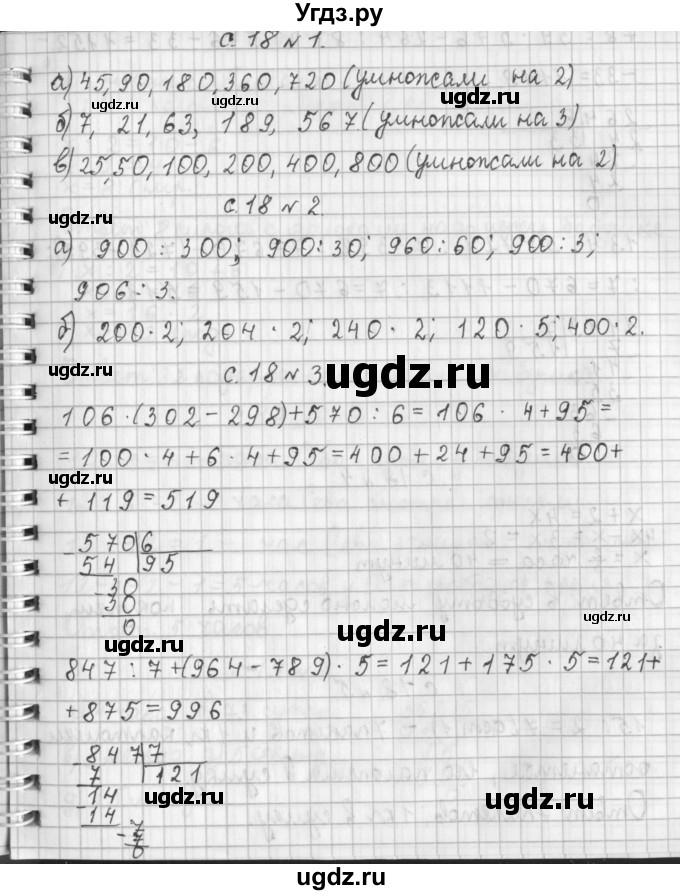 Угдз.ру
с. 18 № 1.
а) 45, 90, 180, 360, 720 (умножали на 2)
ugdz.ru ugdz.ru
б) 7, 21, 63, 189, 567 (умножали на 3)
в) 25, 50, 100, 200, 400, 800 (умножали на 2)
ugdz.ru ugdz.ru
с. 18 № 2.
ugdz.ru
а) 900 : 300; 900 : 30; 960 : 60; 900 : 3;
906 : 3.
ugdz.ru ugdz.ru
б) 200 · 2; 204 · 2; 240 · 2; 120 · 5; 400 · 2.
ugdz.ru ugdz.ru
с. 18 № 3.
106 · (302 - 298) + 570 : 6 = 106 · 4 + 95 =
= 100 · 4 + 6 · 4 + 95 = 400 + 24 + 95 = 400 +
ugdz.ru ugdz.ru
+ 119 = 519
- 570 6
54 95
- 30
30
0
ugdz.ru ugdz.ru
ugdz.ru
847 : 7 + (964 - 789) · 5 = 121 + 175 · 5 = 121 +
+ 875 = 996
- 847 7
7 121
- 14
14
- 7
7
0
ugdz.ru ugdz.ru
ugdz.ru ugdz.ru